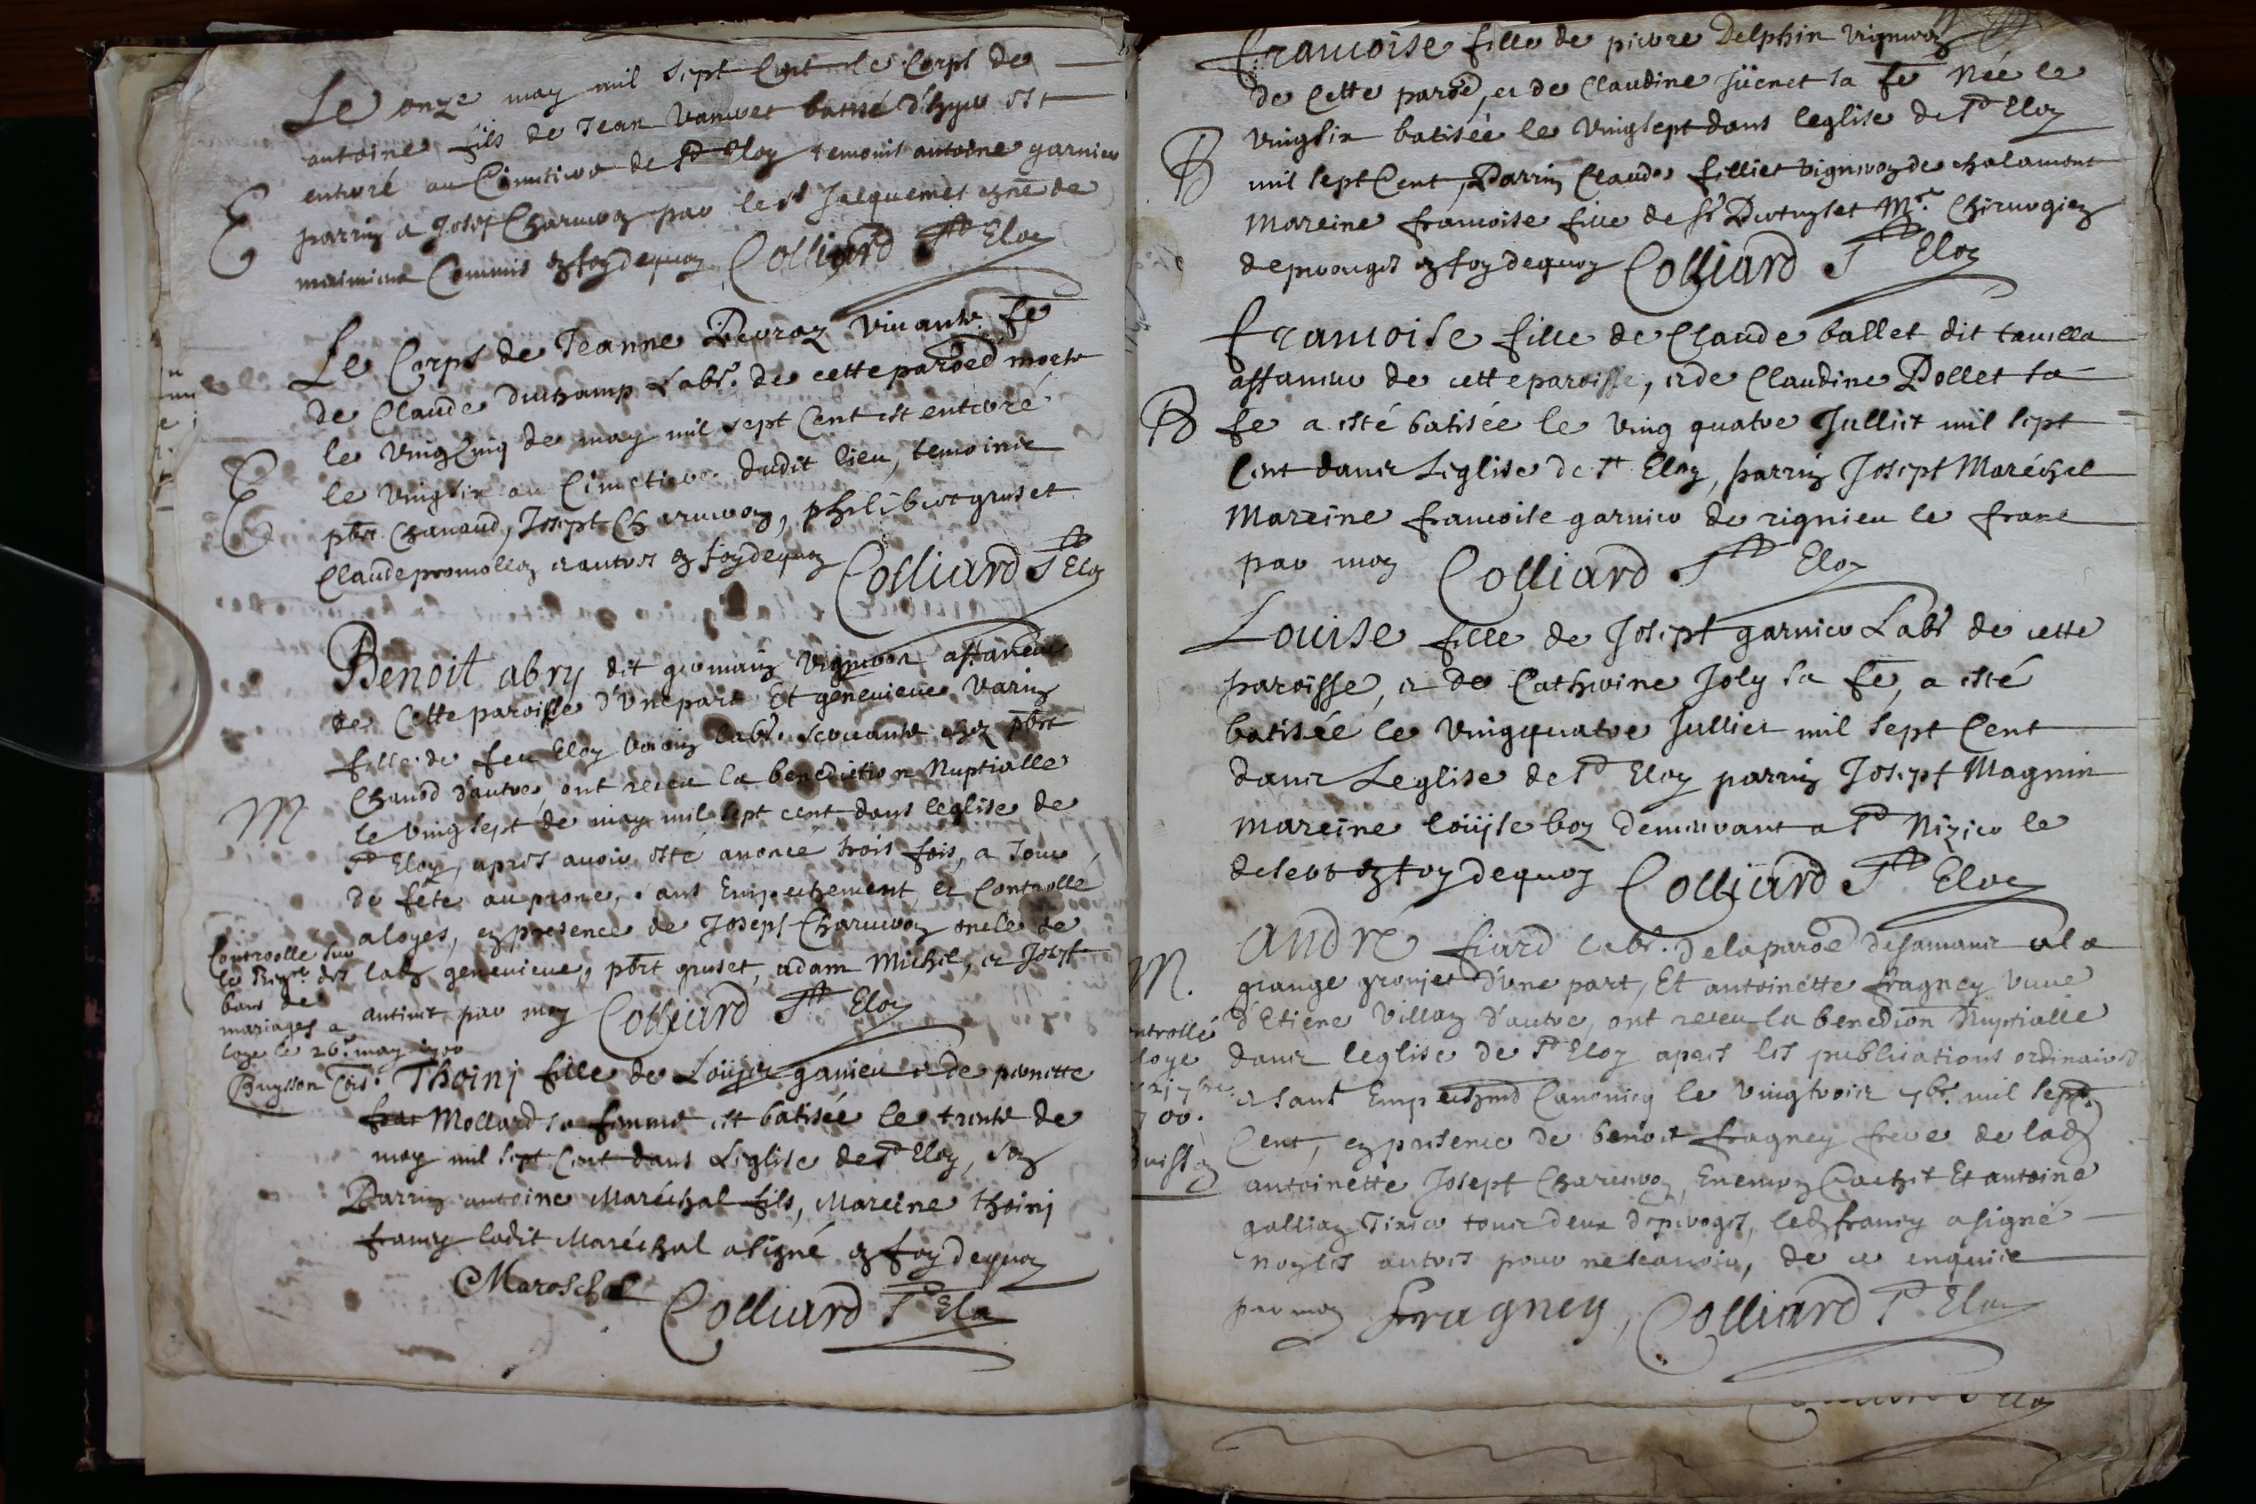 Le onze may mil sept Cent le Corps de
antoine fils de Jean Vanvet batisé d'hyer est
enterré au Cimetiere de St Eloy temoins antoine garnier
E
parrin a Josept Charveron par le Sr Jacquemet
Commis en foy dequoy Colliard St Eloy
Le Corps de Jeanne vivante fe
de Claude duchamp Labr. de cette paroêe morte
le vingcinq de may mil sept Cent est enterré
E
le vingsix au Cimetiere dudit lieu, temoins
pbrt Chanaud, Josept Charveron, philibert gruset
Claude promollon et autres en foy dequoy Colliard St Eloy
Benoit abry dit germain vigneron affaneur
de Cette paroisse d'Une part Et genevieve Varin
fille de feu Eloy Varin labr. servante chez pbrt
Chanod d'autre, ont receu la benediction Nuptialle
M
le vingsept de may mil sept cent dans leglise de
St Eloy, apres avoir esté anoncé trois fois, a Jour
de fete au prone, sans Empechement, et Controlle
a loyes, en presence de Joseph Charveron oncle de
ladt genevieve, pbrt gruset, adam Michel, et Josept
antinet par moy Colliard St Eloy
Controlle sur
le Regre des
bans de
mariages a
loye le 26e may 1700
Buysson Cõis.
Thoinj fille de Loüys ganieu et de pernette
Mollard sa femme est batisée le trente de
may mil sept Cent dans Leglise de St Eloy, son
Parrin antoine Maréchal fils, Mareine thoinj
francy ladit Maréchal a signé en foy dequoy
Mareschal Colliard St Eloy
francoise fille de pierre Delphin vigneron
de Cette paroê, et de Claudine Jüenet sa fe Née le
vingsix batisée le vingsept dans leglise de St Eloy
B
mil sept Cent, Parrin Claude filliet vigneron de chalamont
Mareine francoise fille de Sr Mre Chirurgien
de perouges en foy dequoy Colliard St Eloy
francoise fille de Claude ballet dit tavella
affaneur de cette paroisse, et de Claudine Pollet sa
B
fe a esté batisée le ving quatre Julliet mil sept
Cent dans Leglise de St Eloy, parrin Josept Maréchal
Mareine francoise garnier de rignieu le franc
par moy Colliard St Eloy
Louise fille de Josept garnier Labr de cette
paroisse, et de Catherine Joly sa fe, a esté
batisée le vingquatre Julliet mil sept Cent
dans Leglise de St Eloy parrin Josept Magnin
mareine loüyse boy demeurant a St Nizier le
desert en foy dequoy Colliard St Eloy
André fiard labr. de la paroê de samans a la
M.
grange gronjet d'Une part, Et antoinette fragney veuve
d'Etiene Villan d'autre, ont receu la benedion Nuptialle
dans leglise de St Eloy apres les publications ordinaires
et sans Empechemt Canonicq le vingtrois 7br. mil sept
Cent, en presence de benoit fragney frere de ladt
antoinette Josept Charveron, Enemon Cachet Et antoine
galliay tous deux de perouges, ledt francy a signé
non les autres pour ne scavoir, de ce enquis
par moy fragney, Colliard St Eloy
ntrollé
loye
21 7bre
700.
buisson